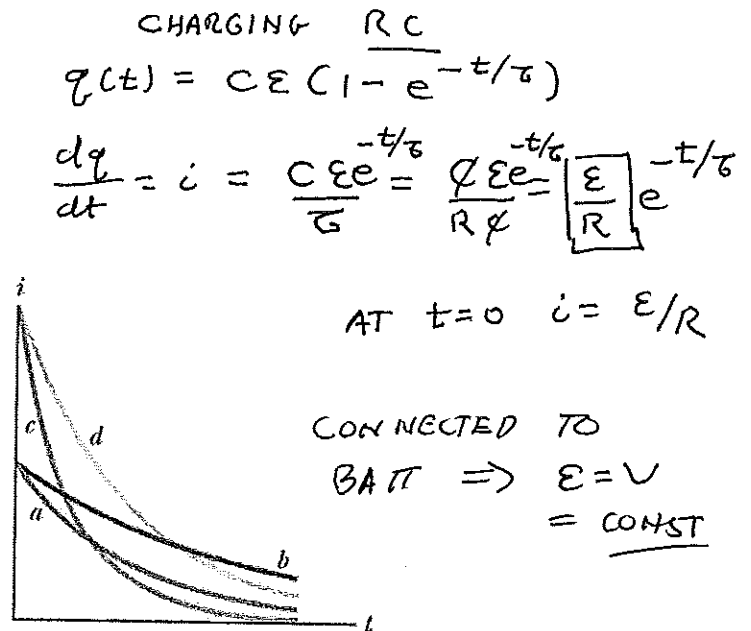 CHARGING RC
q(t) = Cε(1 - e^{-t/τ})
dq/dt = i = Cεe^{-t/τ}/τ = C̸εe^{-t/τ}/RC̸ = ε/R e^{-t/τ}
AT t=0 i = ε/R
CONNECTED TO
BATT ⇒ ε = V
= CONST
i
c
d
a
b
t